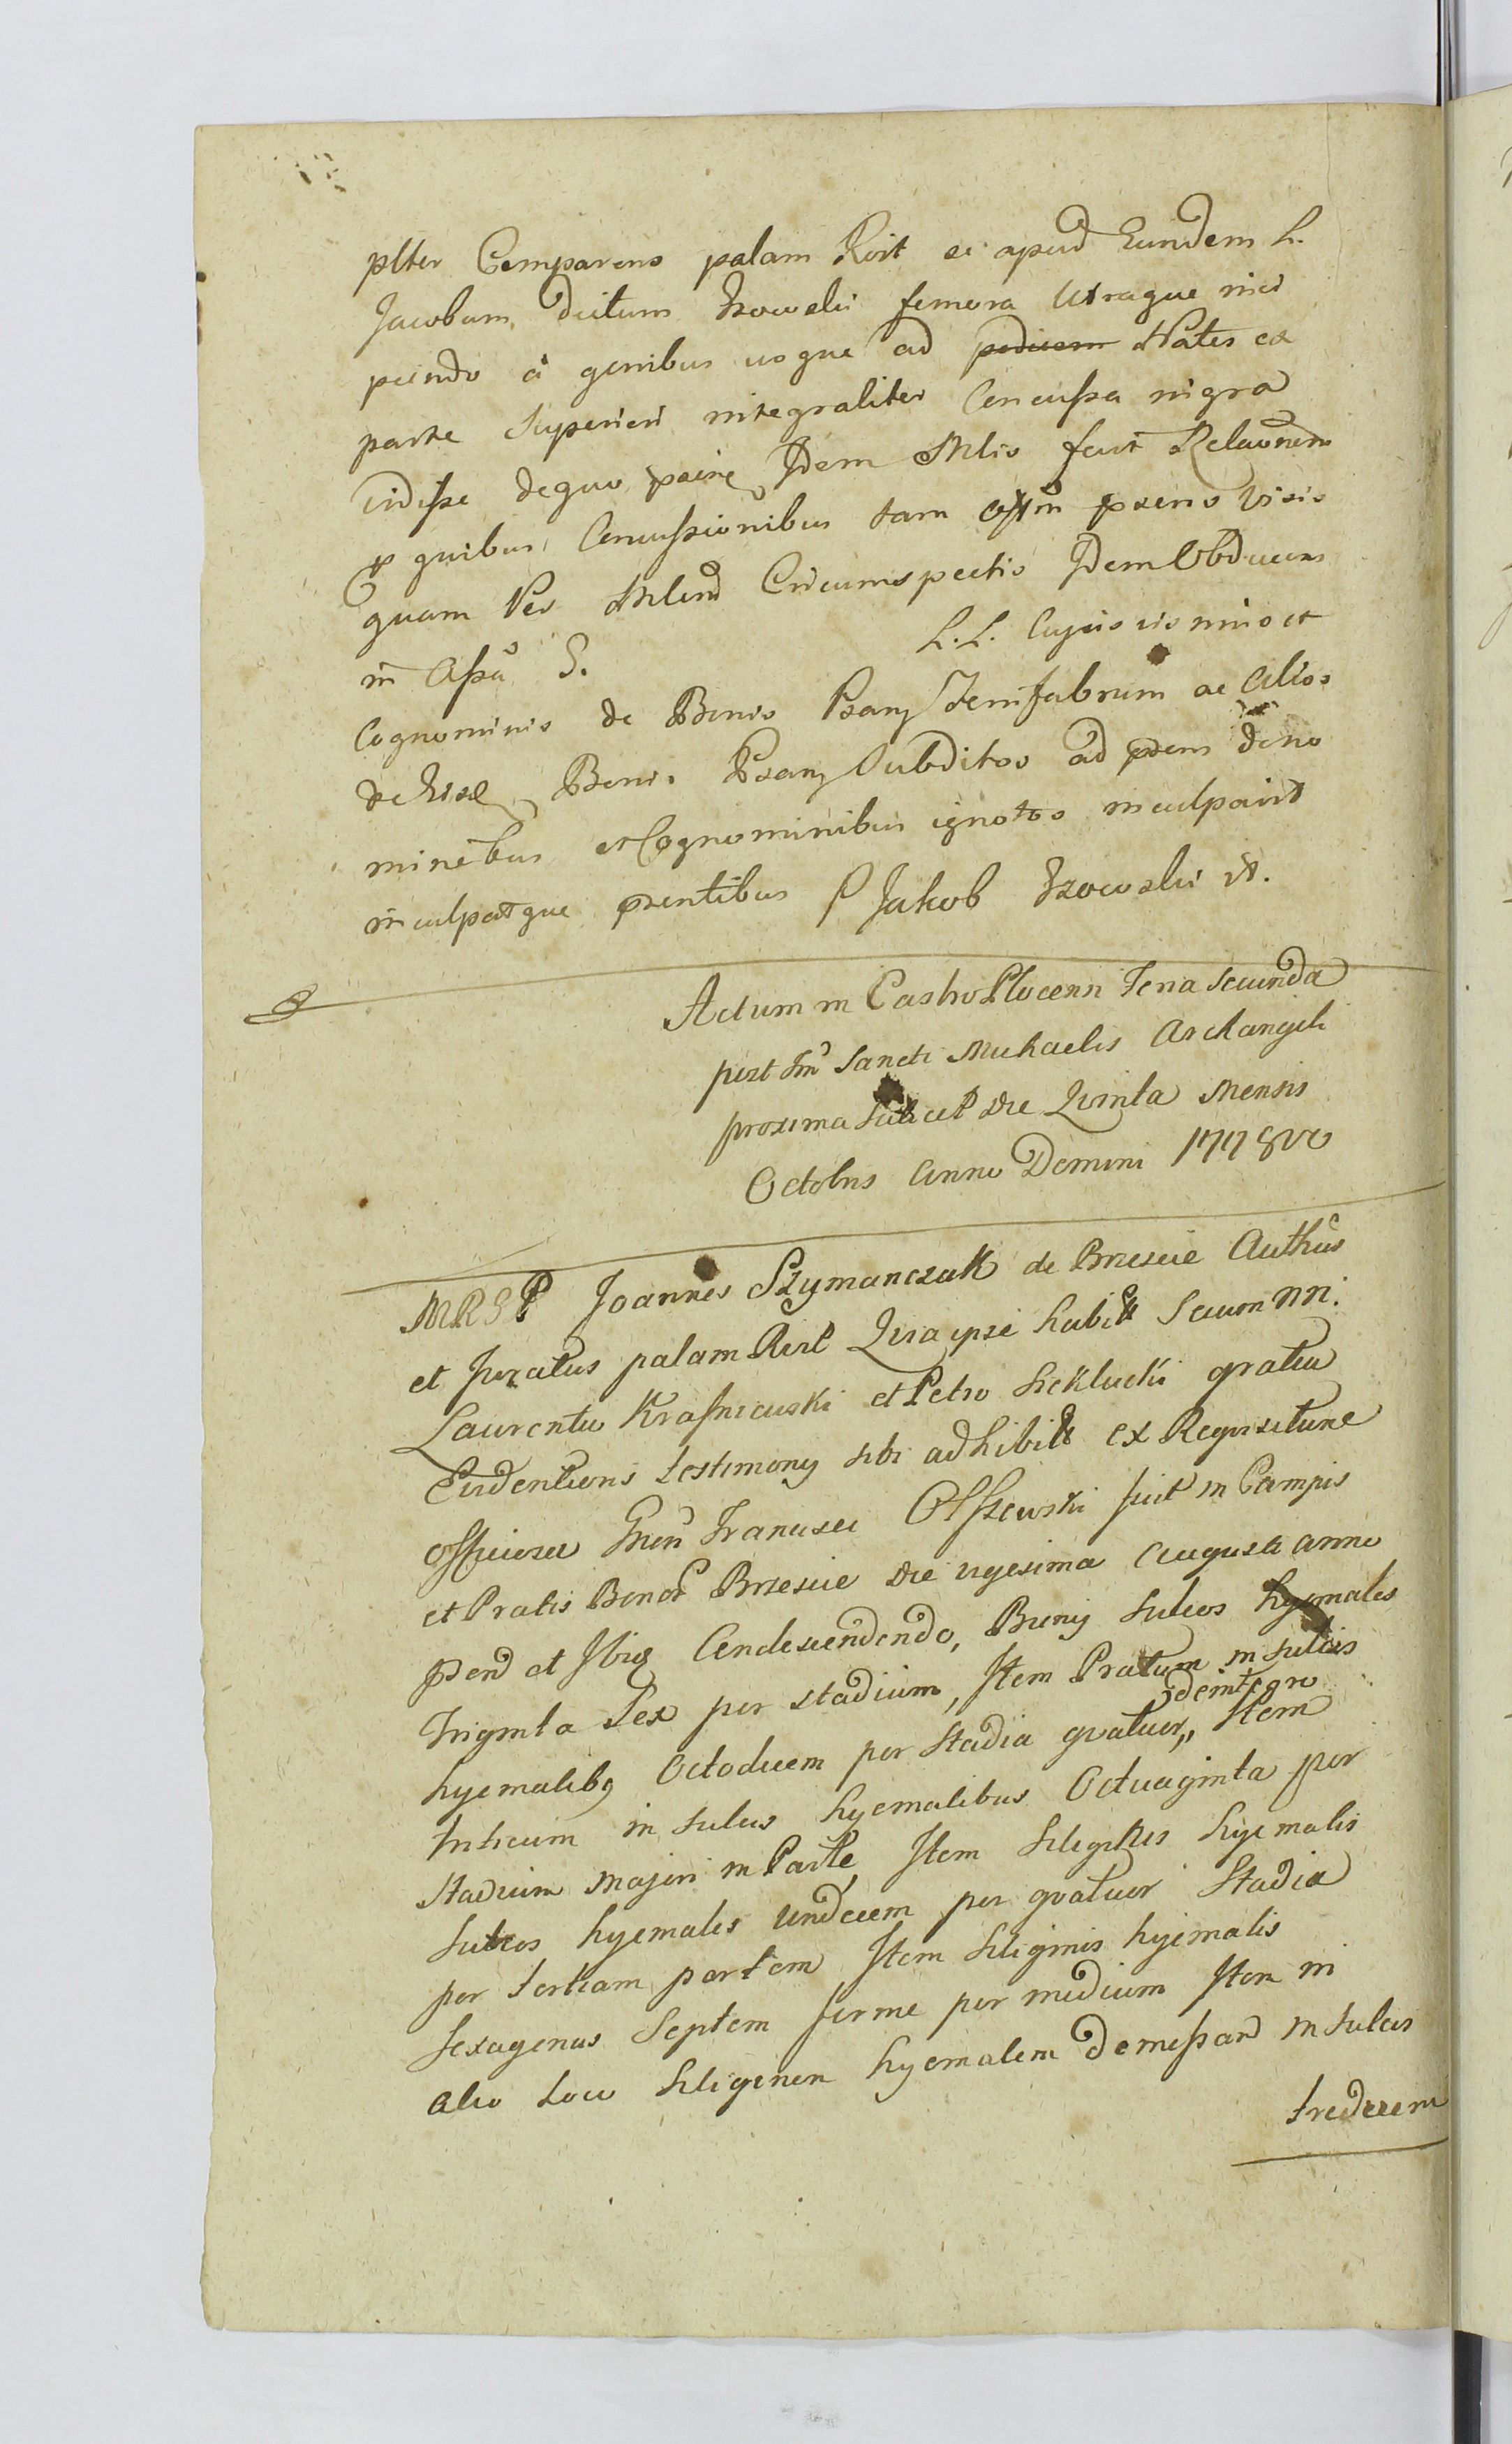 plter Comparens palam Rcit se apud Eundem L.
Jacobum dictum Izowski femora Utraque inci
piendo à genibus usque ad podicem Nates ex
parte Superiori integraliter Concussa nigra
vidisse dequo Idem Mlis fecit Relaōnem
P quibus Concussionibus tam offm prens visis
quam Per Mlem Circumspectis Idem Obducens
in S.
L. L. Cujus vis ninis et
Cognominis de Bonis Psary Ferrifabrum ac alios
de Bonis Psary Subditos ad prens de no
minibus et Cognominibus ignotos inculpavit
inculpatque prentibus P Jakob Izowski
Actum in Castro Plocenn Feria Secunda
post fm Sancti Michaelis Archangeli
proxima Scilicet Die Quinta Mensis
Octobris Anno Domini
MRGP Joannes Szymanczak de Brzescie Authcus
et Juratus palam Rcit Quia ipse habitt Secum nn.
Laurentio Krasniewski et Petro Siekłucki gratia
Evidentioris testimony sibi adhibitt ex Requisitione
officiosa Gnen Francisci Olszewski fuit in Campis
et Pratis Bonor Brzescie Die vigesima Augusti anno
prnd et Ibiq Condescendendo, Sulcos hyemales
Triginta Sex per stadium, Item Pratum in sulcis
hyemalibq Octodecem per Stadia quatuor,, deintegro Item
Triticum in sulcis hyemalibus Octuaginta per
stadium majori in Parte, Item Siliginis hyemalis
Sulcos hyemales undecem per quatuor Stadia
per tertiam partem Item Siliginis hyemalis
sexagenas Septem ferme per medium Item in
alio Loco Siliginem hyemalem demessam in Sulcis
tredecem